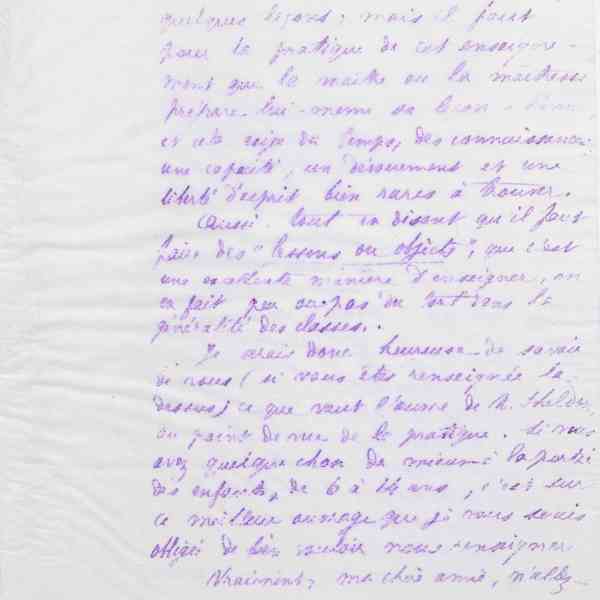 quelques leçons ; mais il faut
pour la pratique de cet enseigne-
ment que le maître ou la maîtresse
prépare lui-même sa leçon
et cela exige du temps, des connaissances
une capacité, un dévouement et une
liberté d'esprit bien rares à trouver.
Aussi tout en disant qu'il faut
faire des "lessons on objects", que c'est
une excellente manière d'enseigner, on
en fait peu ou pas du tout dans la
généralité des classes.
Je serais donc heureuse de savoir
de vous (si vous êtes renseignée là
dessus) ce que vaut l'œuvre de
au point de vue de la pratique. Si vous
avez quelque chose de mieux à la portée
des enfants, de 6 à 14 ans, c'est sur
ce meilleur ouvrage que je vous serais
obligée de bien vouloir nous renseigner
Vraiment, ma chère amie, n'allez-